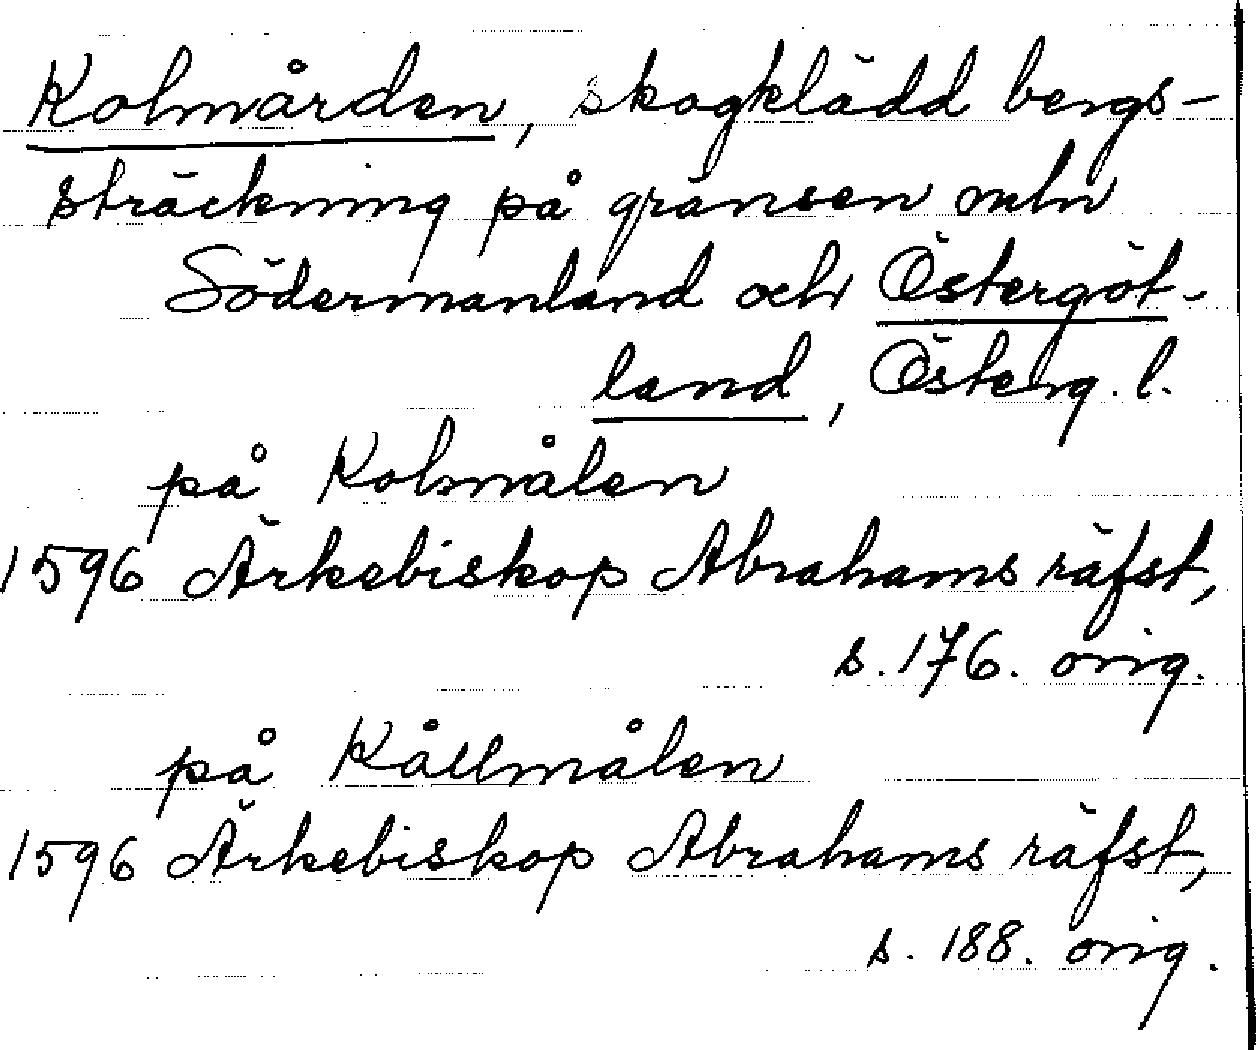 Kolmården, skogklädd bergs-
sträckning på gränsen mln
Södermanland och Östergöt-
land, Österg. l.
på Kolmålen
1596 Ärkebiskop Abrahams räfst,
s. 176. orig.
på Kållmålen
1596 Ärkebiskop Abrahams räfst,
s. 188. orig.